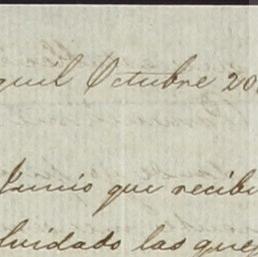 guel Octubre 20
Junio que recibi
lvidado las que